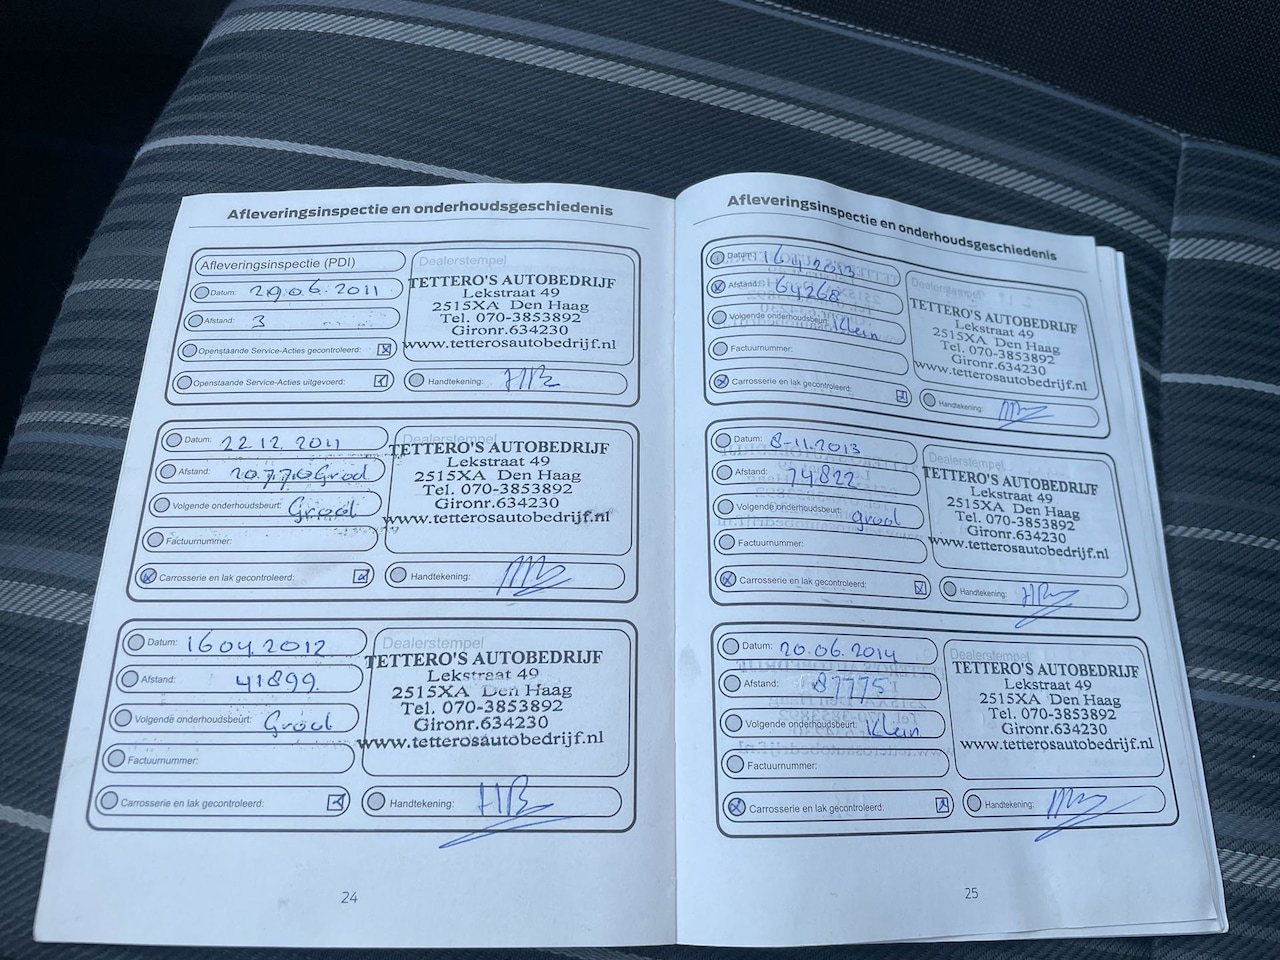 Afleveringsinspectie en onderhoudsgeschiedenis
Afleveringsinspectie (PDI)
Datum: 29.06.2011
Afstand: 3
Openstaande Service-Acties gecontroleerd: x
Openstaande Service-Acties uitgevoerd: x
Dealerstempel
TETTERO'S AUTOBEDRIJF
Lekstraat 49
2515XA Den Haag
Tel. 070-3853892
Gironr.634230
www.tetterosautobedrijf.nl
Handtekening:
Datum: 22.12.2011
Afstand: 20.770 Grood
Volgende onderhoudsbeurt: Grood
Factuurnummer:
Carrosserie en lak gecontroleerd: x
Dealerstempel
TETTERO'S AUTOBEDRIJF
Lekstraat 49
2515XA Den Haag
Tel. 070-3853892
Gironr.634230
www.tetterosautobedrijf.nl
Handtekening:
Datum: 16 04.2012
Afstand: 41899.
Volgende onderhoudsbeurt: Grood
Factuurnummer:
Carrosserie en lak gecontroleerd: x
Dealerstempel
TETTERO'S AUTOBEDRIJF
Lekstraat 49
2515XA Den Haag
Tel. 070-3853892
Gironr.634230
www.tetterosautobedrijf.nl
Handtekening:
24
Afleveringsinspectie en onderhoudsgeschiedenis
Datum: 16 2013
Afstand: 64268
Volgende onderhoudsbeurt: Klein
Factuurnummer:
Carrosserie en lak gecontroleerd: x
Dealerstempel
TETTERO'S AUTOBEDRIJF
Lekstraat 49
2515XA Den Haag
Tel. 070-3853892
Gironr.634230
www.tetterosautobedrijf.nl
Handtekening:
Datum: 8-11.2013
Afstand: 74.822
Volgende onderhoudsbeurt: grood
Factuurnummer:
Carrosserie en lak gecontroleerd: x
Dealerstempel
TETTERO'S AUTOBEDRIJF
Lekstraat 49
2515XA Den Haag
Tel. 070-3853892
Gironr.634230
www.tetterosautobedrijf.nl
Handtekening:
Datum: 20.06.2014
Afstand: 87775
Volgende onderhoudsbeurt: Klein
Factuurnummer:
Carrosserie en lak gecontroleerd: x
Dealerstempel
TETTERO'S AUTOBEDRIJF
Lekstraat 49
2515XA Den Haag
Tel. 070-3853892
Gironr.634230
www.tetterosautobedrijf.nl
Handtekening:
25